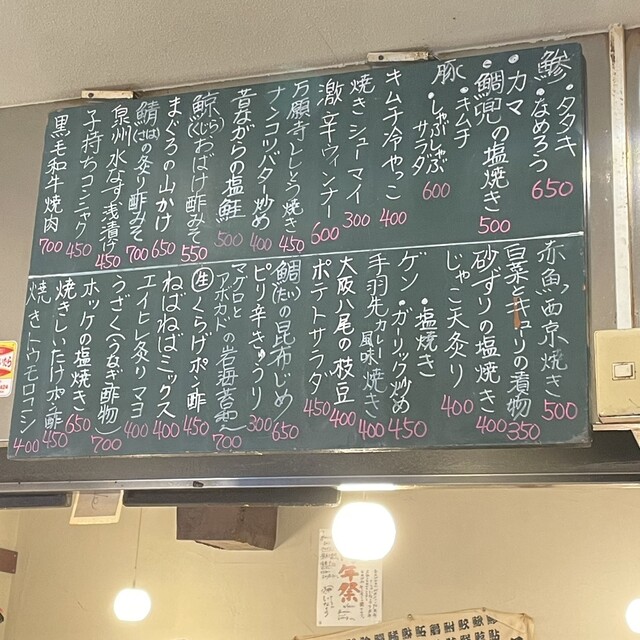 鯵・タタキ
・なめろう 650
・カマ
・鯛兜の塩焼き 500
豚・キムチ
・しゃぶしゃぶサラダ 600
キムチ冷やっこ 400
焼きシューマイ 300
激辛ウィンナー 600
万願寺とうがらし焼き 450
ナンコツバター炒め 400
昔ながらの塩鮭 500
鯨(くじら)おばけ酢みそ 550
まぐろの山かけ 650
鯖(さば)の炙り酢みそ 700
泉州水なす浅漬け 450
子持ちコンニャク 450
黒毛和牛焼肉 700
赤魚西京焼き 500
白菜とキュリの漬物 350
砂ずりの塩焼き 400
じゃこ天炙り 400
ゲソ・塩焼き
・ガーリック炒め 450
手羽先カレー風味焼き 400
大阪八尾の枝豆 400
ポテトサラダ 450
鯛(たい)の昆布〆 650
ピリ辛きゅうり 300
マグロとアボカドの 700
生くらげポン酢 450
ねばねばミックス 400
エイヒレ炙りマヨ 400
うざく(うなぎ酢物) 700
ホッケの塩焼き 650
焼きしいたけポン酢 450
焼きトウモロコシ 400
年祭